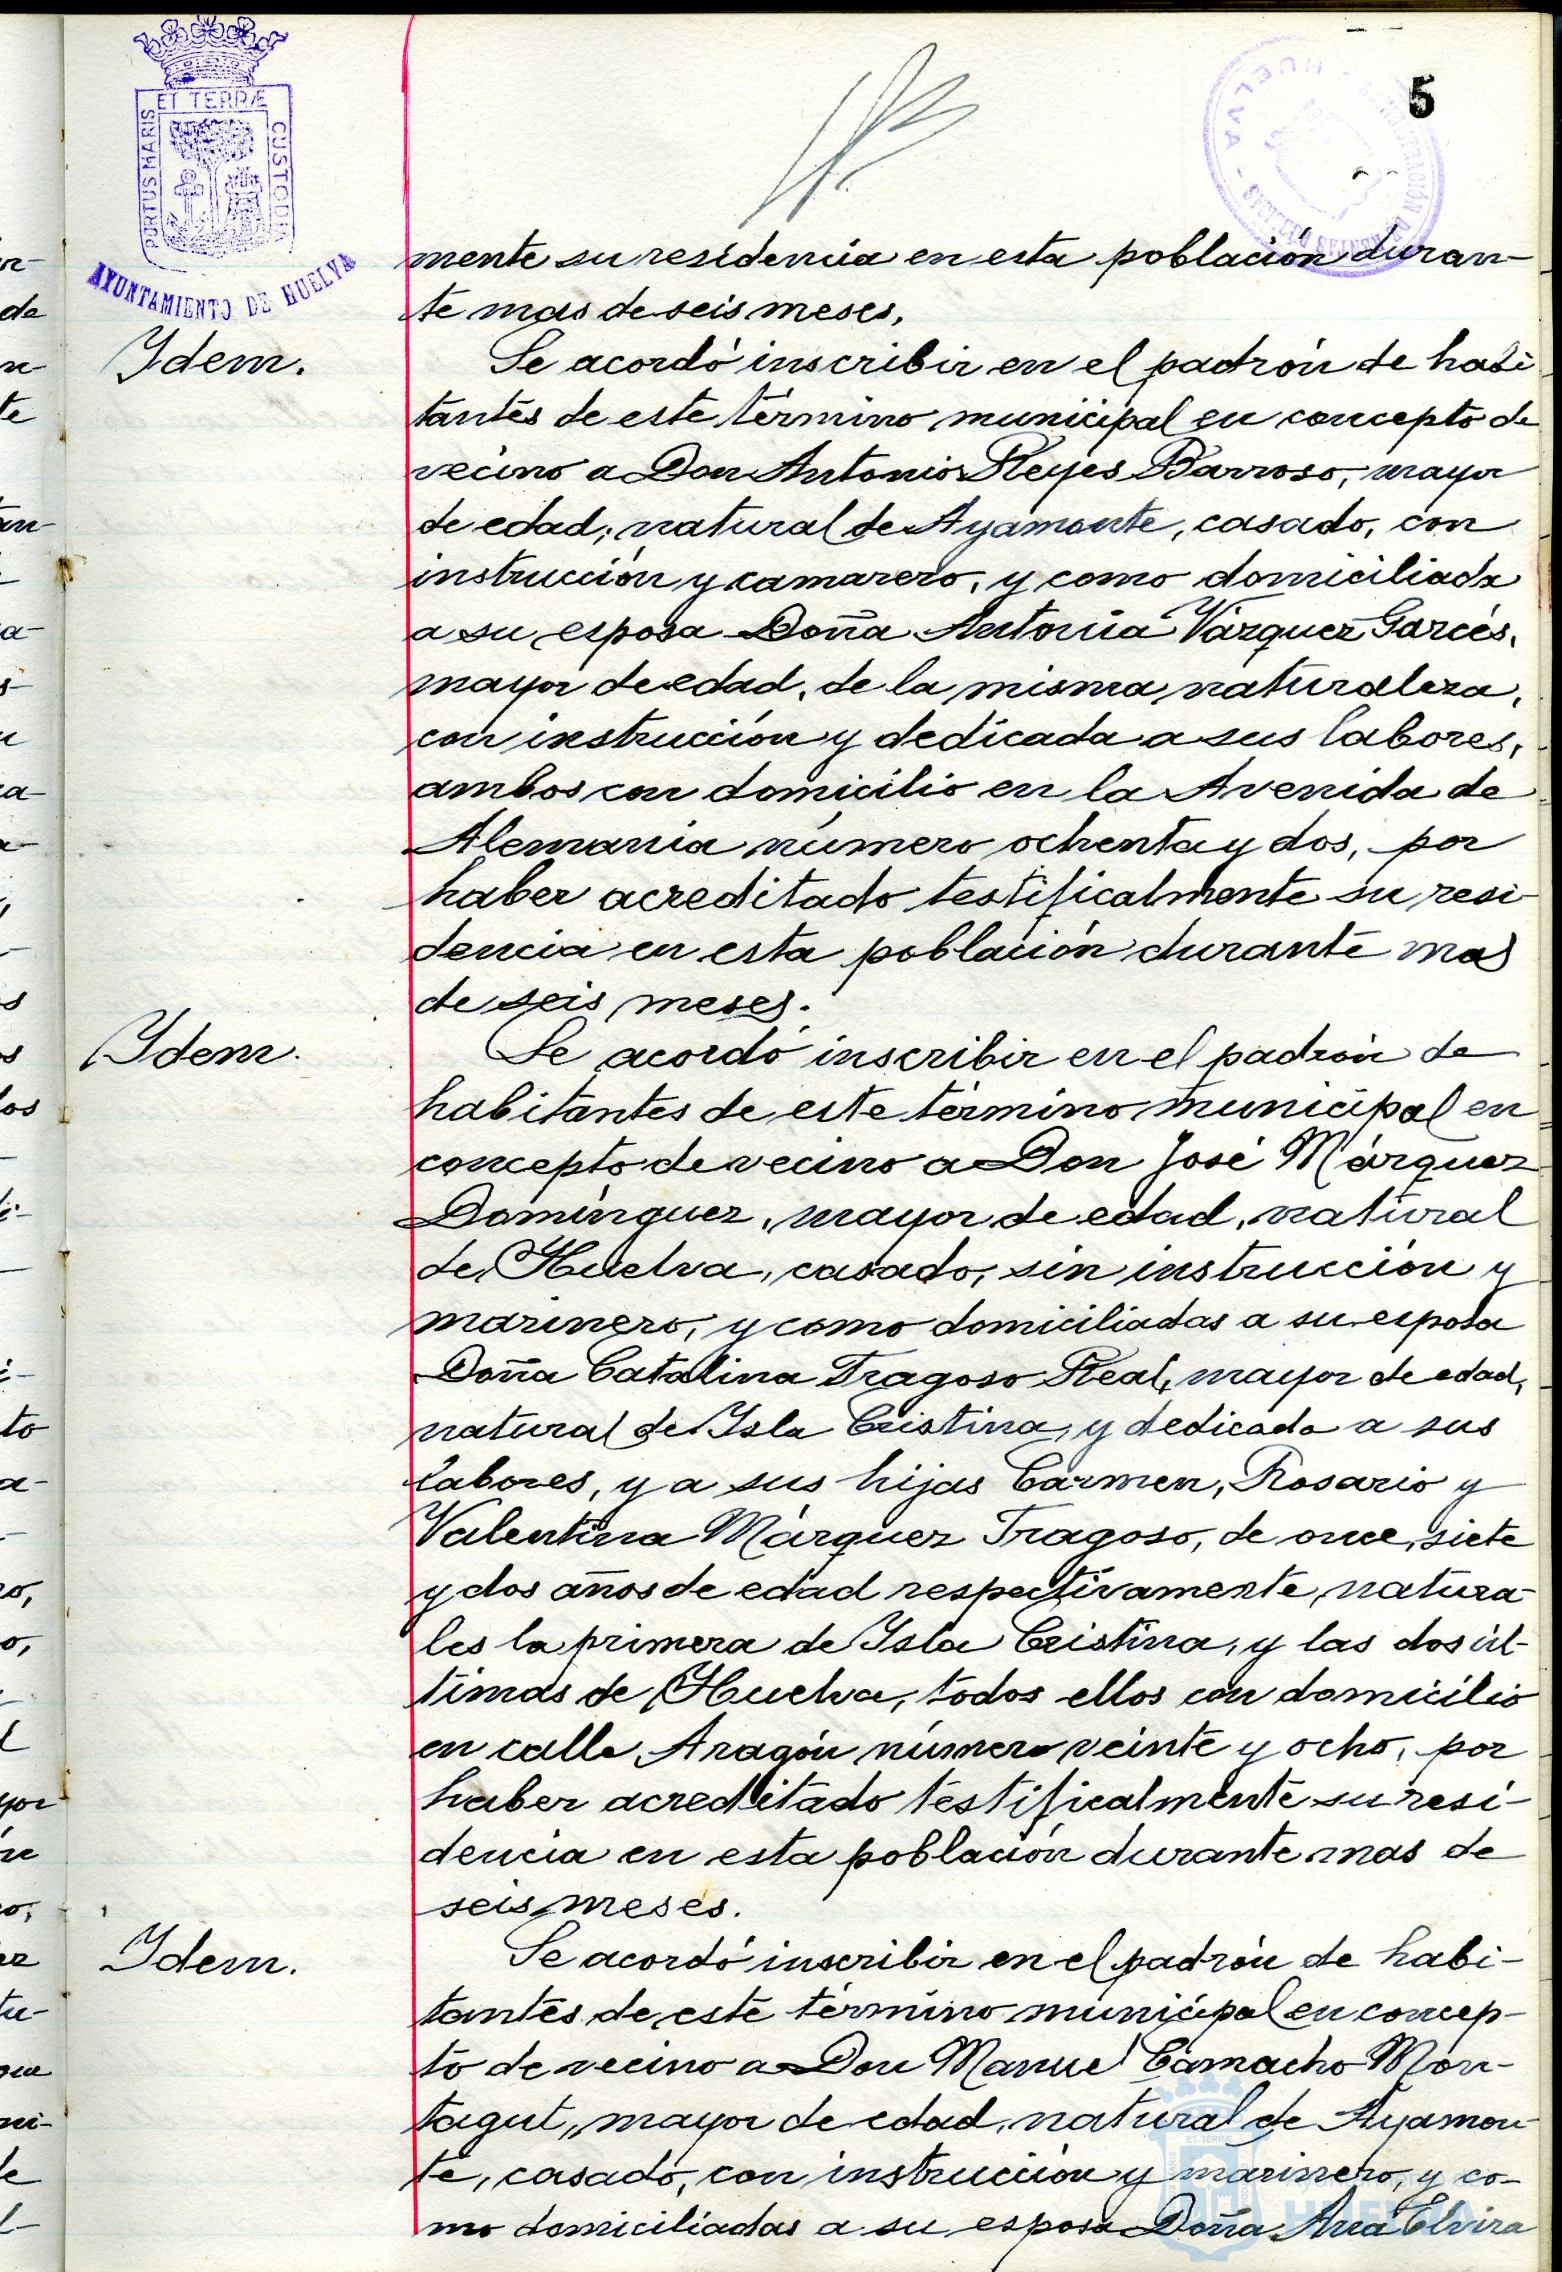 5
ET TERRÆ
PORTUS MARIS
CUSTODIA
AYUNTAMIENTO DE HUELVA
HUELVA
mente su residencia en esta población duran-
te mas de seis meses.
Idem.
Se acordó inscribir en el padrón de habi
tantes de este término municipal en concepto de
vecino a Don Antonio Reyes Barroso, mayor
de edad, natural de Ayamonte, casado, con
instrucción y camarero, y como domiciliada
a su esposa Doña Antonia Vázquez Garcés,
mayor de edad, de la misma naturaleza,
con instrucción y dedicada a sus labores,
ambos con domicilio en la Avenida de
Alemania número ochenta y dos, por
haber acreditado testificalmente su resi-
dencia en esta población durante mas
de seis meses.
Idem.
Se acordó inscribir en el padrón de
habitantes de este término municipal en
concepto de vecino a Don José Márquez
Domínguez, mayor de edad, natural
de Huelva, casado, sin instrucción y
marinero, y como domiciliadas a su esposa
Doña Catalina Fragoso Real, mayor de edad,
natural de Isla Cristina, y dedicada a sus
labores, y a sus hijas Carmen, Rosario y
Valentina Márquez Fragoso, de once, siete
y dos años de edad respectivamente, natura-
les la primera de Isla Cristina, y las dos úl-
timas de Huelva, todos ellos con domicilio
en calle Aragón número veinte y ocho, por
haber acreditado testificalmente su resi-
dencia en esta población durante mas de
seis meses.
Idem.
Se acordó inscribir en el padrón de habi-
tantes de este término municipal en concep-
to de vecino a Don Manuel Camacho Mon-
tagut, mayor de edad, natural de Ayamon-
te, casado, con instrucción y marinero, y co-
mo domiciliadas a su esposa Doña Ana Elvira
HUELVA